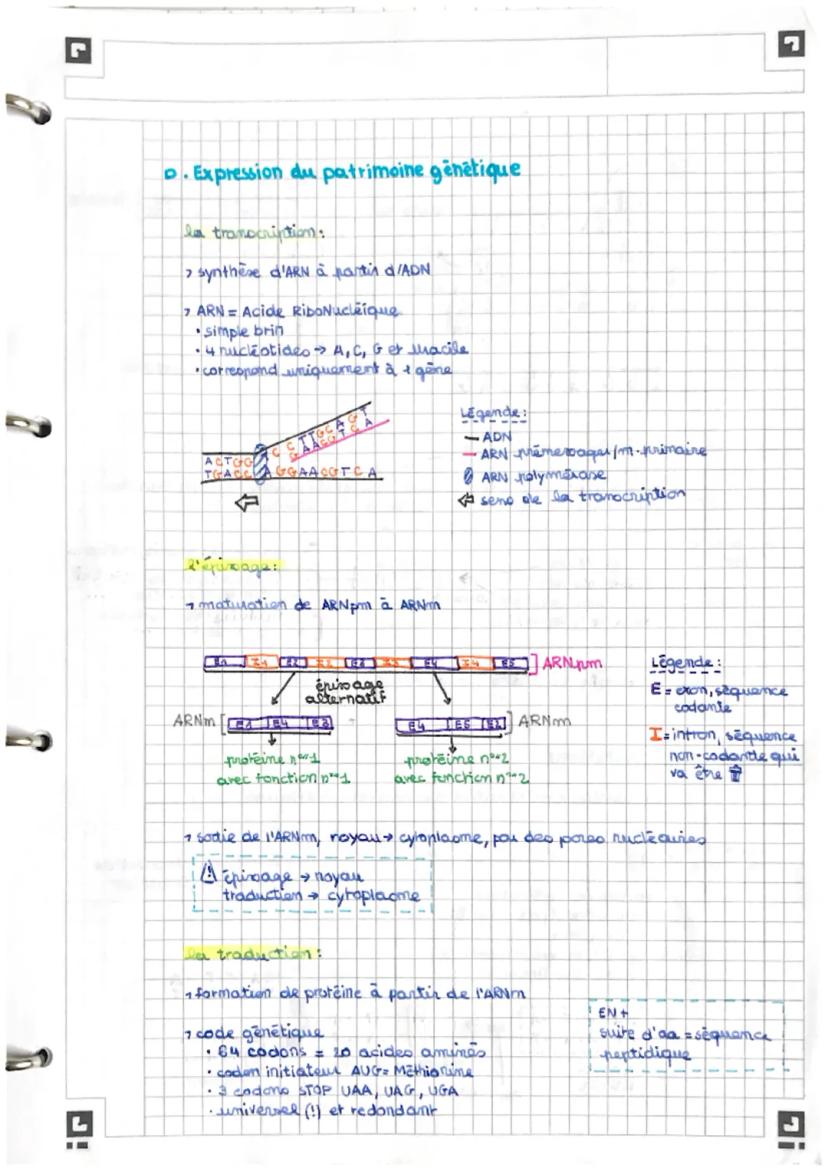 D. Expression du patrimoine génétique
la transcription:
> synthèse d'ARN à partir d'ADN
> ARN = Acide RiboNucléique
• simple brin
• 4 nucléotides → A, C, G et uracile
• correspond uniquement à 1 gène
Légende:
ADN
ARN prémessager/m. primaire
ARN polymérase
sens de la transcription
ACTGG
TGACC AGGAACGTCA
l'épissage:
> maturation de ARNpm à ARNm
E1 I1 E2 I2 E3 I3 E4 I4 E5 ] ARNpm
épissage
alternatif
Légende:
E = exon, séquence
codante
I = intron, séquence
non-codante qui
va être
ARNm [
E4
E4 E5 ] ARNm
protéine n°1
avec fonction n°1
protéine n°2
avec fonction n°2
> sortie de l'ARNm, noyau → cytoplasme, par des pores nucléaires
⚠ épissage → noyau
traduction → cytoplasme
la traduction:
> formation de protéine à partir de l'ARNm
> code génétique
• 64 codons = 20 acides aminés
• codon initiateur AUG = Méthionine
• 3 codons STOP UAA, UAG, UGA
• universel (!) et redondant
EN +
suite d'aa = séquence
peptidique